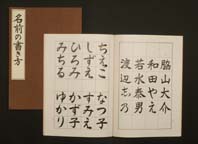 名前の書き方
脇山大介
和田やえ
若水泰男
渡辺志乃
なつ子
すみえ
かず子
ゆかり
ちえこ
しずえ
ひろみ
みちる